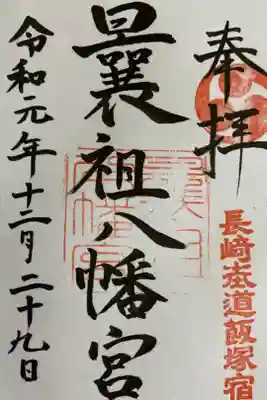 奉拝
長崎街道飯塚宿
曩祖八幡宮
令和元年十二月二十九日